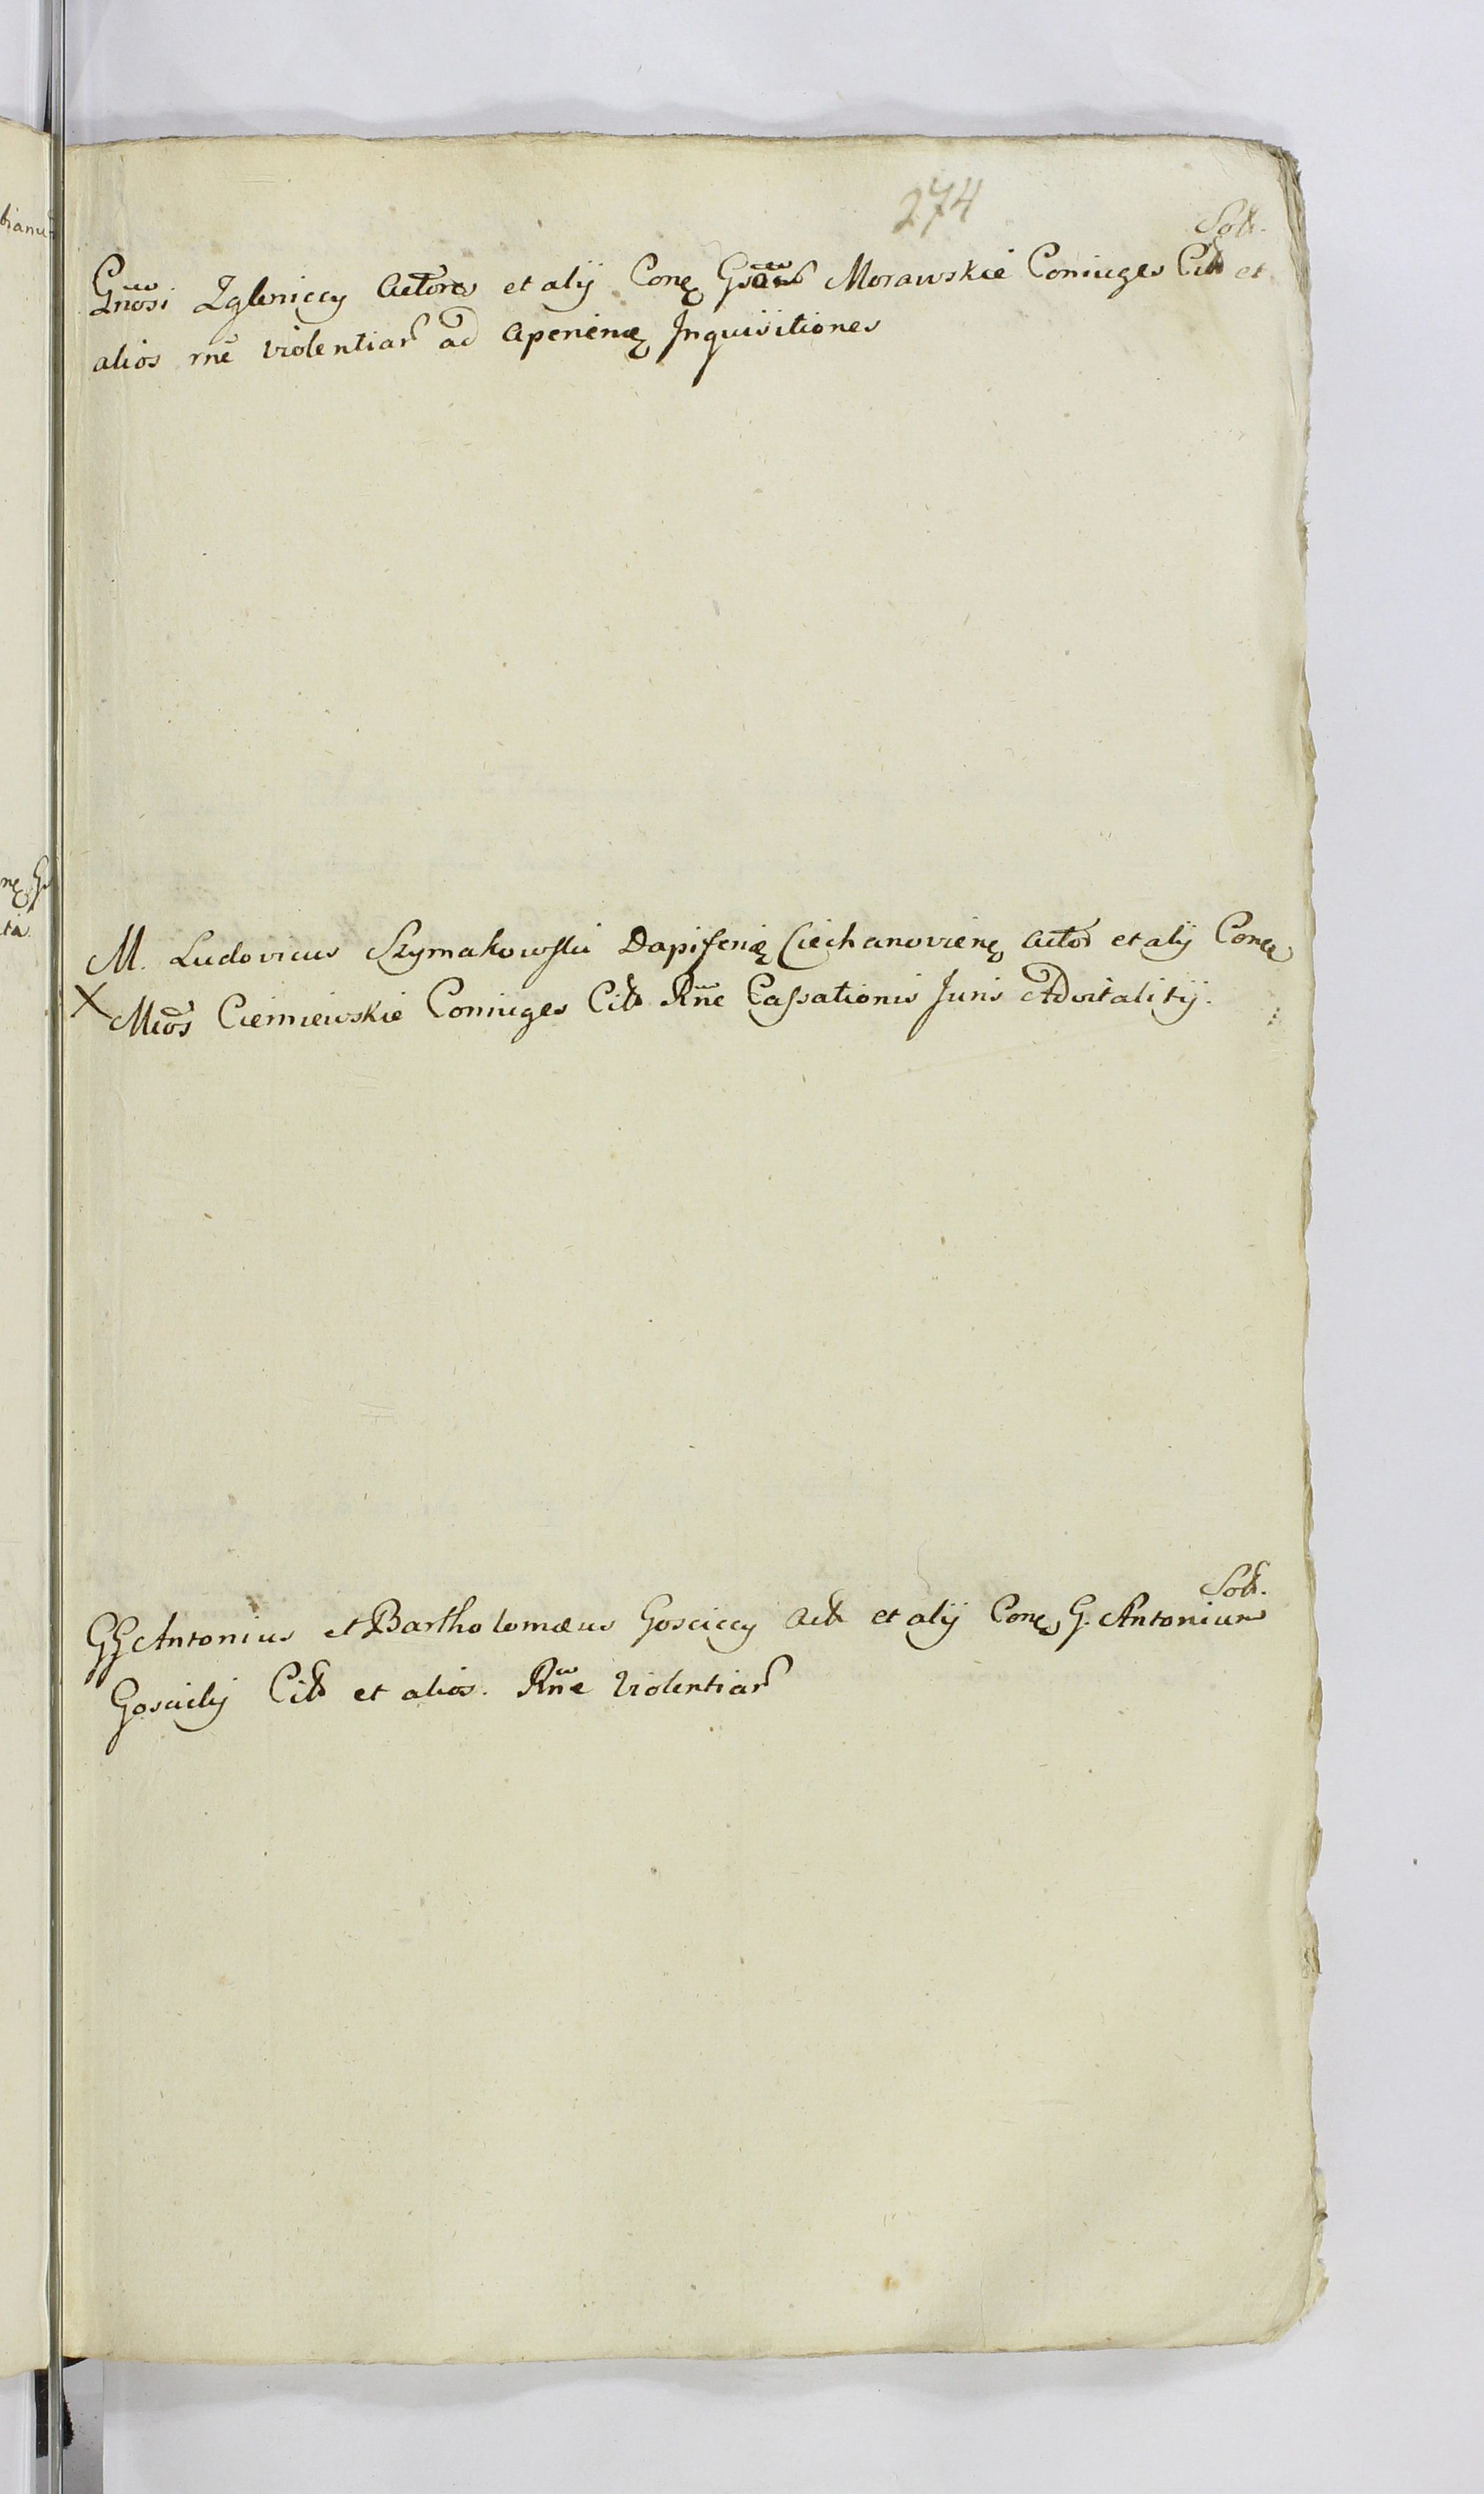 274
Solt.
Gnosi Zgleniccy Actores et alij Conę Gsos Morawskie Coniuges Citt et
alios rne violentiar ad aperienę Inquisitiones
M. Ludovicus Szymakowski Dapiferię Ciechanovienę Actor et alij Conę
X Mcos Cieminiewskie Coniuges Citt Rne Cassationis Juris Advitalitij.
Solt.
GG Antonius et Bartholomæus Gosciccy Actt et alij Conę G. Antonium
Goscicki Citt et alios. Rne Violentiar